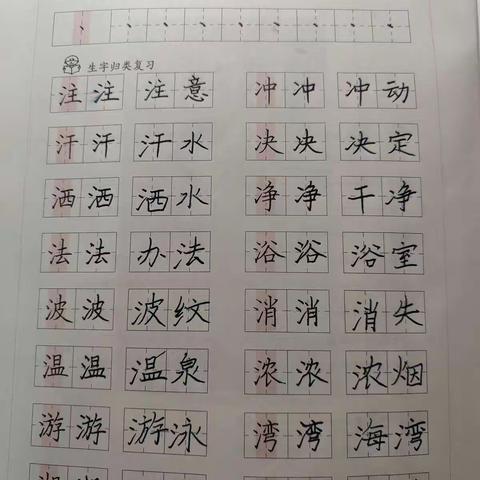 生字归类复习
注 注 注 意 冲 冲 冲 动
汗 汗 汗 水 决 决 决 定
洒 洒 洒 水 净 净 干 净
法 法 办 法 浴 浴 浴 室
波 波 波 纹 消 消 消 失
温 温 温 泉 浓 浓 浓 烟
游 游 游 泳 湾 湾 海 湾